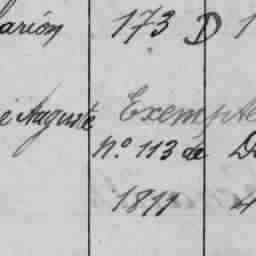 arión 173 D 1
e Auguste Exempte
n.º 113 de De
1811 4